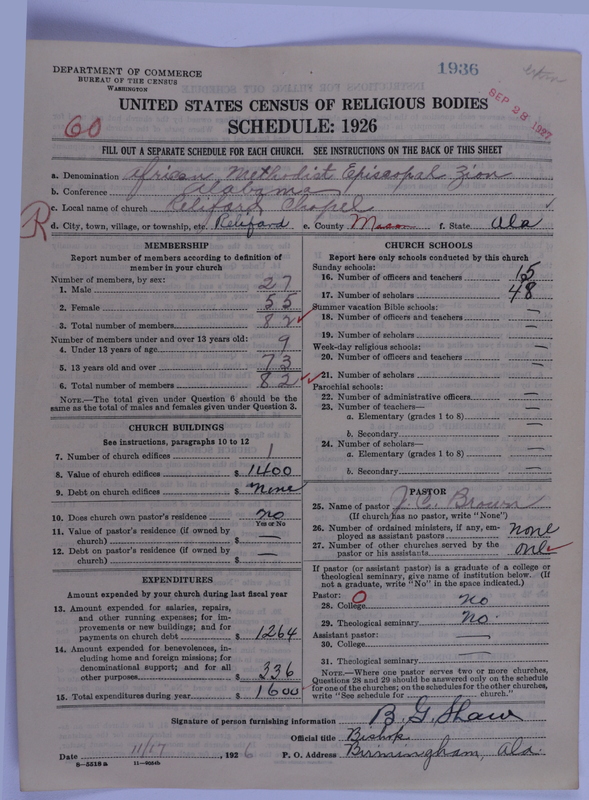 DEPARTMENT OF COMMERCE
BUREAU OF THE CENSUS
WASHINGTON
1936
SEP 28 1927
60
UNITED STATES CENSUS OF RELIGIOUS BODIES
SCHEDULE: 1926
FILL OUT A SEPARATE SCHEDULE FOR EACH CHURCH. SEE INSTRUCTIONS ON THE BACK OF THIS SHEET
a. Denomination African Methodist Episcopal Zion
b. Conference Alabama
c. Local name of church Reliford Chapel
R
d. City, town, village, or township, etc. Reliford e. County Macon f. State Ala
MEMBERSHIP
Report number of members according to definition of
member in your church
Number of members, by sex:
1. Male 27
2. Female 55
3. Total number of members 82
Number of members under and over 13 years old:
4. Under 13 years of age 9
5. 13 years old and over 73
6. Total number of members 82
NOTE.—The total given under Question 6 should be
same as the total of males and females given under Question 3.
CHURCH BUILDINGS
See instructions, paragraphs 10 to 12
7. Number of church edifices 1
8. Value of church edifices $ 1400
9. Debt on church edifices $ none
10. Does church own pastor's residence no
Yes or No
11. Value of pastor's residence (if owned by
church) $ —
12. Debt on pastor's residence (if owned by
church) $ —
EXPENDITURES
Amount expended by your church during last fiscal year
13. Amount expended for salaries, repairs,
and other running expenses; for im-
provements or new buildings; and for
payments on church debt $ 1264
14. Amount expended for benevolences, in-
cluding home and foreign missions; for
denominational support; and for all
other purposes $ 336
15. Total expenditures during year $ 1600
CHURCH SCHOOLS
Report here only schools conducted by this church
Sunday schools:
16. Number of officers and teachers 15
17. Number of scholars 48
Summer vacation Bible schools:
18. Number of officers and teachers —
19. Number of scholars —
Week-day religious schools:
20. Number of officers and teachers —
21. Number of scholars —
Parochial schools:
22. Number of administrative officers —
23. Number of teachers—
a. Elementary (grades 1 to 8) —
b. Secondary —
24. Number of scholars—
a. Elementary (grades 1 to 8) —
b. Secondary —
PASTOR
25. Name of pastor J. C. Brown
(If church has no pastor, write "None")
26. Number of ordained ministers, if any, em-
ployed as assistant pastors none
27. Number of other churches served by the
pastor or his assistants one
If pastor (or assistant pastor) is a graduate of a college or
theological seminary, give name of institution below. (If
not a graduate, write "No" in the space indicated.)
Pastor: O
28. College no
29. Theological seminary no.
Assistant pastor: —
30. College —
31. Theological seminary
NOTE.—Where one pastor serves two or more churches,
Questions 28 and 29 should be answered only on the schedule
for one of the churches; on the schedules for the other churches,
write "See schedule for church."
Signature of person furnishing information B. G. Shaw
Official title Bishop
Date 11/17, 1926 P. O. Address Birmingham, Ala.
8—5518 a 11—9054b